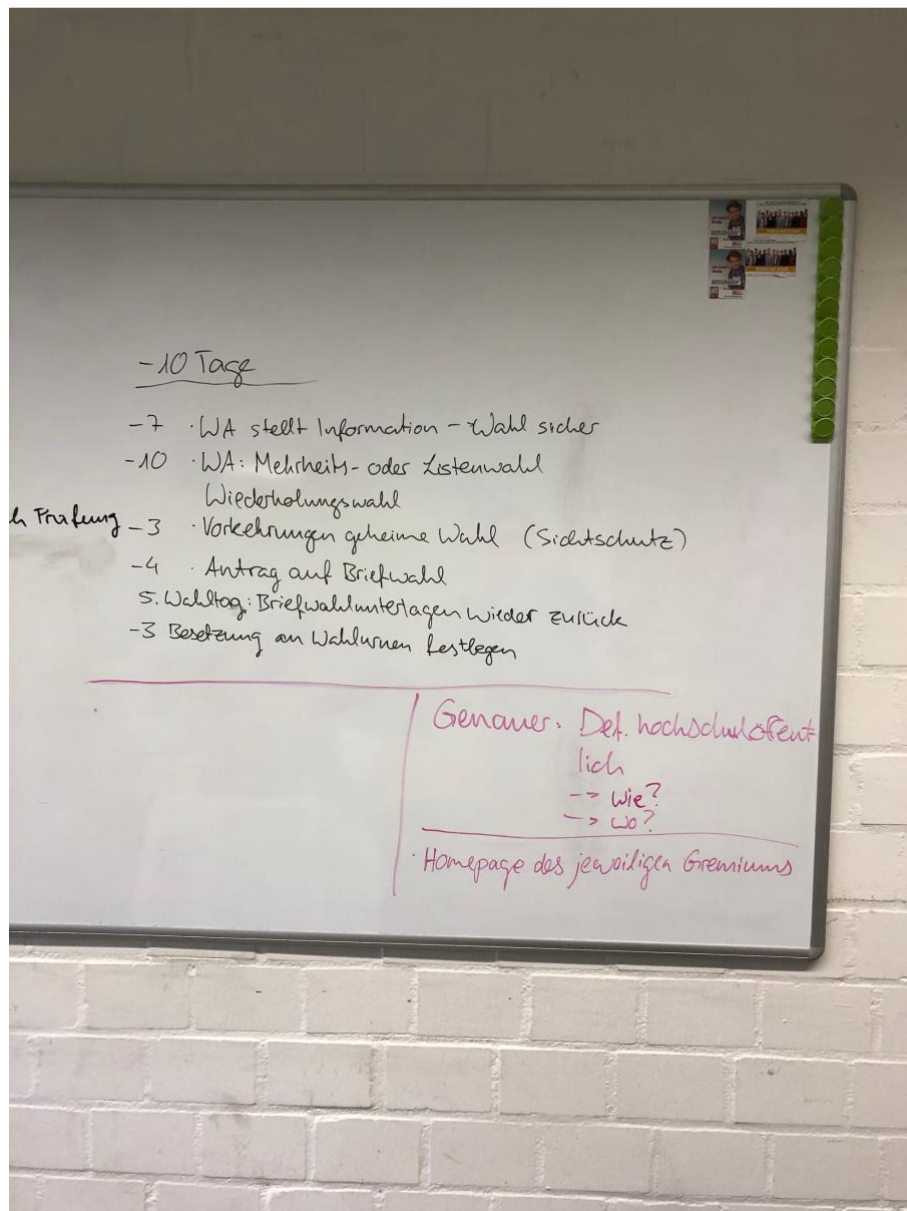 -10 Tage
-7 · WA stellt Information - Wahl sicher
-10 · WA: Mehrheits- oder Listenwahl
Wiederholungswahl
h Prüfung -3 · Vorkehrungen geheime Wahl (Sichtschutz)
-4 · Antrag auf Briefwahl
5. Wahltag: Briefwahlunterlagen wieder zurück
-3 Besetzung an Wahlurnen festlegen
Genauer: Def. hochschulöffent-
lich
--> Wie?
--> Wo?
· Homepage des jeweiligen Gremiums